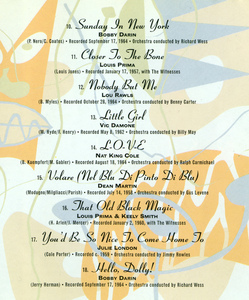 10. Sunday In New York
BOBBY DARIN
(P. Nero/C. Coates) • Recorded September 17, 1964 • Orchestra conducted by Richard Wess
11. Closer To The Bone
LOUIS PRIMA
(Louis Jones) • Recorded January 17, 1957, with The Witnesses
12. Nobody But Me
LOU RAWLS
(B. Myles) • Recorded October 28, 1964 • Orchestra conducted by Benny Carter
13. Little Girl
VIC DAMONE
(M. Hyde/F. Henry) • Recorded May 8, 1962 • Orchestra conducted by Billy May
14. L.O.V.E
NAT KING COLE
(B. Kaempfert/M. Gabler) • Recorded August 18, 1964 • Orchestra conducted by Ralph Carmichael
15. Volare (Nel Blu Di Pinto Di Blu)
DEAN MARTIN
(Modugno/Migliacci/Parish) • Recorded July 14, 1958 • Orchestra conducted by Gus Levene
16. That Old Black Magic
LOUIS PRIMA & KEELY SMITH
(H. Arlen/J. Mercer) • Recorded January 2, 1960, with The Witnesses
17. You'd Be So Nice To Come Home To
JULIE LONDON
(Cole Porter) • 1959 • Orchestra conducted by Jimmy Rowles
18. Hello, Dolly!
BOBBY DARIN
(Jerry Herman) • Recorded September 17, 1964 • Orchestra conducted by Richard Wess